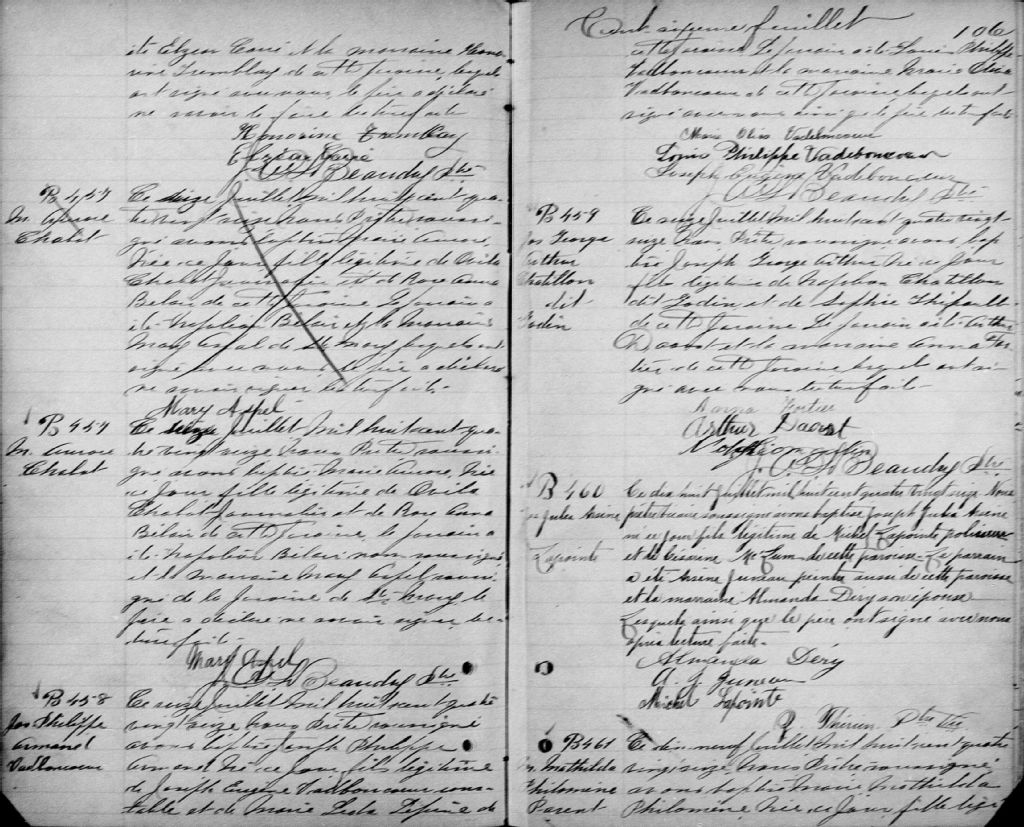 été Elzear Carié et la marraine Hono-
rine Tremblay de cette paroisse, lesquels
ont signé avec nous, le père a déclaré
ne savoir le faire lecture faite
Honorine Tremblay
Elzear Carié
J. A. S. Beaudry Ptre
B 457
M. Aurore
Chalet
Ce seize Juillet mil huit cent qua-
tre vingt seize nous Prêtre soussi-
gné avons baptisé Marie Aurore,
Née ce Jour, fille légitime de Ovila
Chalet journalier et de Rose Anna
Belair de cette Paroisse Le parrain a
été Napoléon Belair et la Marraine
Mary Aspel de St Mary lesquels ont
signé avec nous le père a déclaré
ne savoir signer lecture faite.
Mary Aspel
B 457
M. Aurore
Chalet
Ce seize Juillet Mil huit cent qua-
tre vingt seize Nous Prêtre soussi-
gné avons baptisé Marie Aurore, Née
ce Jour fille légitime de Ovila
Chalet Journalier et de Rose Anna
Bélair de cette Paroisse, le parrain a
été Napoléon Bélair non soussigné
et la marraine Mary Aspel soussi-
gné de la paroisse de St Mary le
père a déclaré ne savoir signer lec-
ture faite.
Mary Aspel
J. A. S. Beaudry Ptre
B 458
Jos Philippe
Armand
Vadboncoeur
Ce seize Juillet mil huit cent quatre
vingt seize Nous Prêtre soussigné
avons baptisé Joseph Philippe
Armand Né ce Jour, fils légitime
de Joseph Eugène Vadboncoeur cons-
table et de Marie Leda de
Cent sixième feuillet
106
cette paroisse Le parrain a été Louis Philippe
Vadboncoeur et la marraine Marie Olisa
Vadboncoeur de cette Paroisse lesquels ont
signé avec nous ainsi que le père lecture faite
Marie Olisa Vadeboncoeur
Louis Philippe Vadeboncoeur
Joseph Eugène Vadeboncoeur
J. A. S. Beaudry Ptre
B 459
Jos George
Arthur
Chatillon
dit
Godin
Ce seize Juillet Mil huit cent quatre vingt
seize Nous Prêtre soussigné avons bap
tisé Joseph George Arthur Né ce Jour
fils légitime de Napoléon Chatillon
dit Godin et de Sophie Thifault
de cette Paroisse Le parrain a été Arthur
Daoust et la marraine Anna For-
tier de cette Paroisse lesquels ont si-
gné avec nous lecture faite.
Anna Fortier
Arthur Daoust
J. A. S. Beaudry Ptre
B 460
Jos Jules Arsène
Lapointe
Ce dix huit Juillet mil huit cent quatre vingt seize Nous
prêtre vicaire soussigné avons baptisé Joseph Jules Arsène
né ce jour fils légitime de Michel Lapointe policeur
et de Césarine de cette paroisse. Le parrain
a été Arsène Juneau peintre aussi de cette paroisse
et la marraine Almanda Dery son épouse
Lesquels ainsi que le père ont signé avec nous
après lecture faite.
Almanda Déry
A. J. Juneau
Michel Lapointe
Ptre Vic
B 461
M. Mathilda
Philomène
Parent
Ce dix neuf Juillet Mil huit cent quatre
vingt seize, Nous Prêtre soussigné
avons baptisé Marie Mathilda
Philomène, Née ce Jour, fille légi-